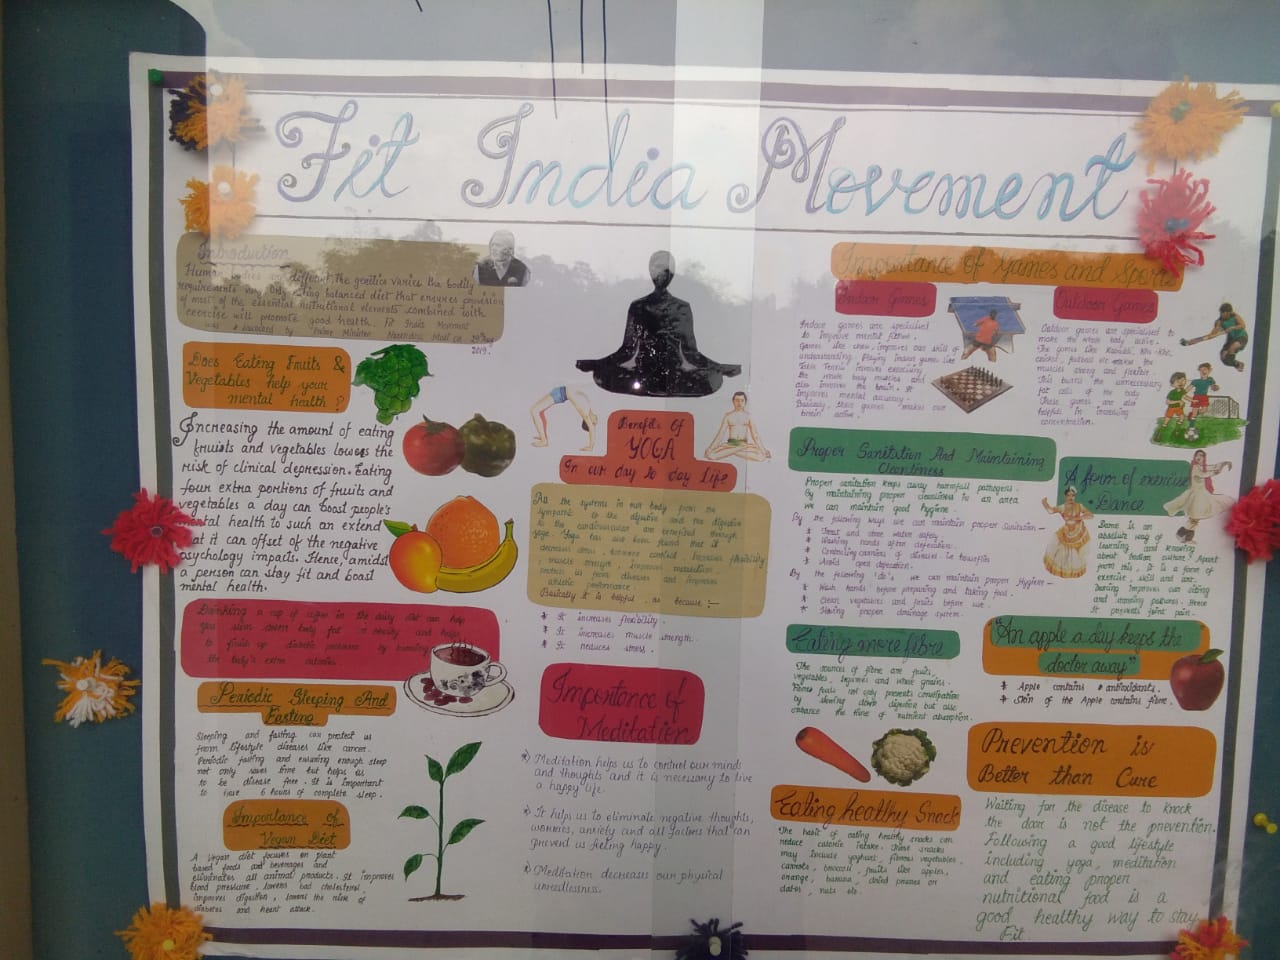 Fit India Movement
Introduction
Human bodies are different, the genetics varies the bodily
requirements vary. Only eating balanced diet that ensures provision
of most of the essential nutritional elements combined with
exercise will promote good health. Fit India Movement
was launched by Prime Minister Narendra Modi on 29th Aug
2019.
Does Eating Fruits &
Vegetables help your
mental health?
Increasing the amount of eating
fruits and vegetables lowers the
risk of clinical depression. Eating
four extra portions of fruits and
vegetables a day can boost people's
mental health to such an extend
that it can offset of the negative
psychology impacts. Hence, amidst
a person can stay fit and boast
mental health.
Drinking a cup of coffee in the daily diet can help
you slim down body fat
to finish up diabetic problems by burning
the body's extra calories.
Periodic Sleeping And
Fasting
Sleeping and fasting can protect us
from lifestyle diseases like cancer.
Periodic fasting and ensuring enough sleep
not only saves time but helps us
to be disease free. It is important
to have 6 hours of complete sleep.
Importance of
Vegan Diet
A Vegan diet focuses on plant
based foods and beverages and
eliminates all animal products. It improves
blood pressure, lowers bad cholesterol,
improves digestion, lowers the risk of
diabetes and heart attack.
Benefits Of
YOGA
In our day to day life
As the systems in our body from the
sympatic to the digestive and the digestive
to the cardiovascular are benefited through
yoga. Yoga has also been found that it
decreases stress, hormone control, increases flexibility
, muscle strength, improves metabolism
protects us from diseases and improves
athletic performance.
Basically it is helpful, as because :-
* It increases flexibility.
* It increases muscle strength.
* It reduces stress.
Importance of
Meditation
Meditation helps us to control our minds
and thoughts and it is necessary to live
a happy life.
It helps us to eliminate negative thoughts,
worries, anxiety and all factors that can
prevent us feeling happy.
Meditation decreases our physical
unwellness.
Importance of Games and Sports
Indoor Games
Indoor games are specialised
to improve mental fitness.
Games like chess, improves our skill of
understanding. Playing indoor game like
Table Tennis involves exercising
the whole body muscles and
also involves the brain. It
improves mental accuracy.
Basically, these games makes our
brain active.
Outdoor Games
Outdoor games are specialised to
make the whole body active.
The games like Kabaddi, Kho-Kho,
cricket, football etc makes the
muscles strong and flexible.
This burns the unnecessary
fat cells of the body
These games are also
helpful in increasing
concentration.
Proper Sanitation And Maintaining
Cleanliness
Proper sanitation keeps away harmful pathogens.
By maintaining proper cleanliness in an area
we can maintain good hygiene.
By the following ways we can maintain proper sanitation -
* Treat and store water safely
* Washing hands after defecation.
* Controlling carriers of disease like houseflies
* Avoid open defecation.
By the following 'do's we can maintain proper hygiene -
* Wash hands before preparing and taking food.
* Clean vegetables and fruits before use.
* Having proper drainage system.
A form of exercise
- Dance
absolute way of
learning and knowing
about Indian culture. Apart
from this, it is a form of
exercise, skill and art.
Dancing improves our sitting
and standing postures. Hence
it prevents joint pain.
Eating more fibre
The sources of fibre are fruits,
vegetables, legumes and whole grains.
Fibre foods not only prevents constipation
by slowing down digestion but also
enhance the time of nutrient absorption.
"An apple a day keeps the
doctor away"
* Apple contains antioxidants.
* Skin of the Apple contains fibre.
Eating healthy Snack
The habit of eating healthy snacks can
reduce calorie intake. These snacks
may include yoghurt, fibrous vegetables,
carrots, broccoli, fruits like apples,
orange, banana, dried prunes or
dates, nuts etc.
Prevention is
Better than Cure
Waiting for the disease to knock
the door is not the prevention.
Following a good lifestyle
including yoga, meditation
and eating proper
nutritional food is a
good healthy way to stay
Fit.